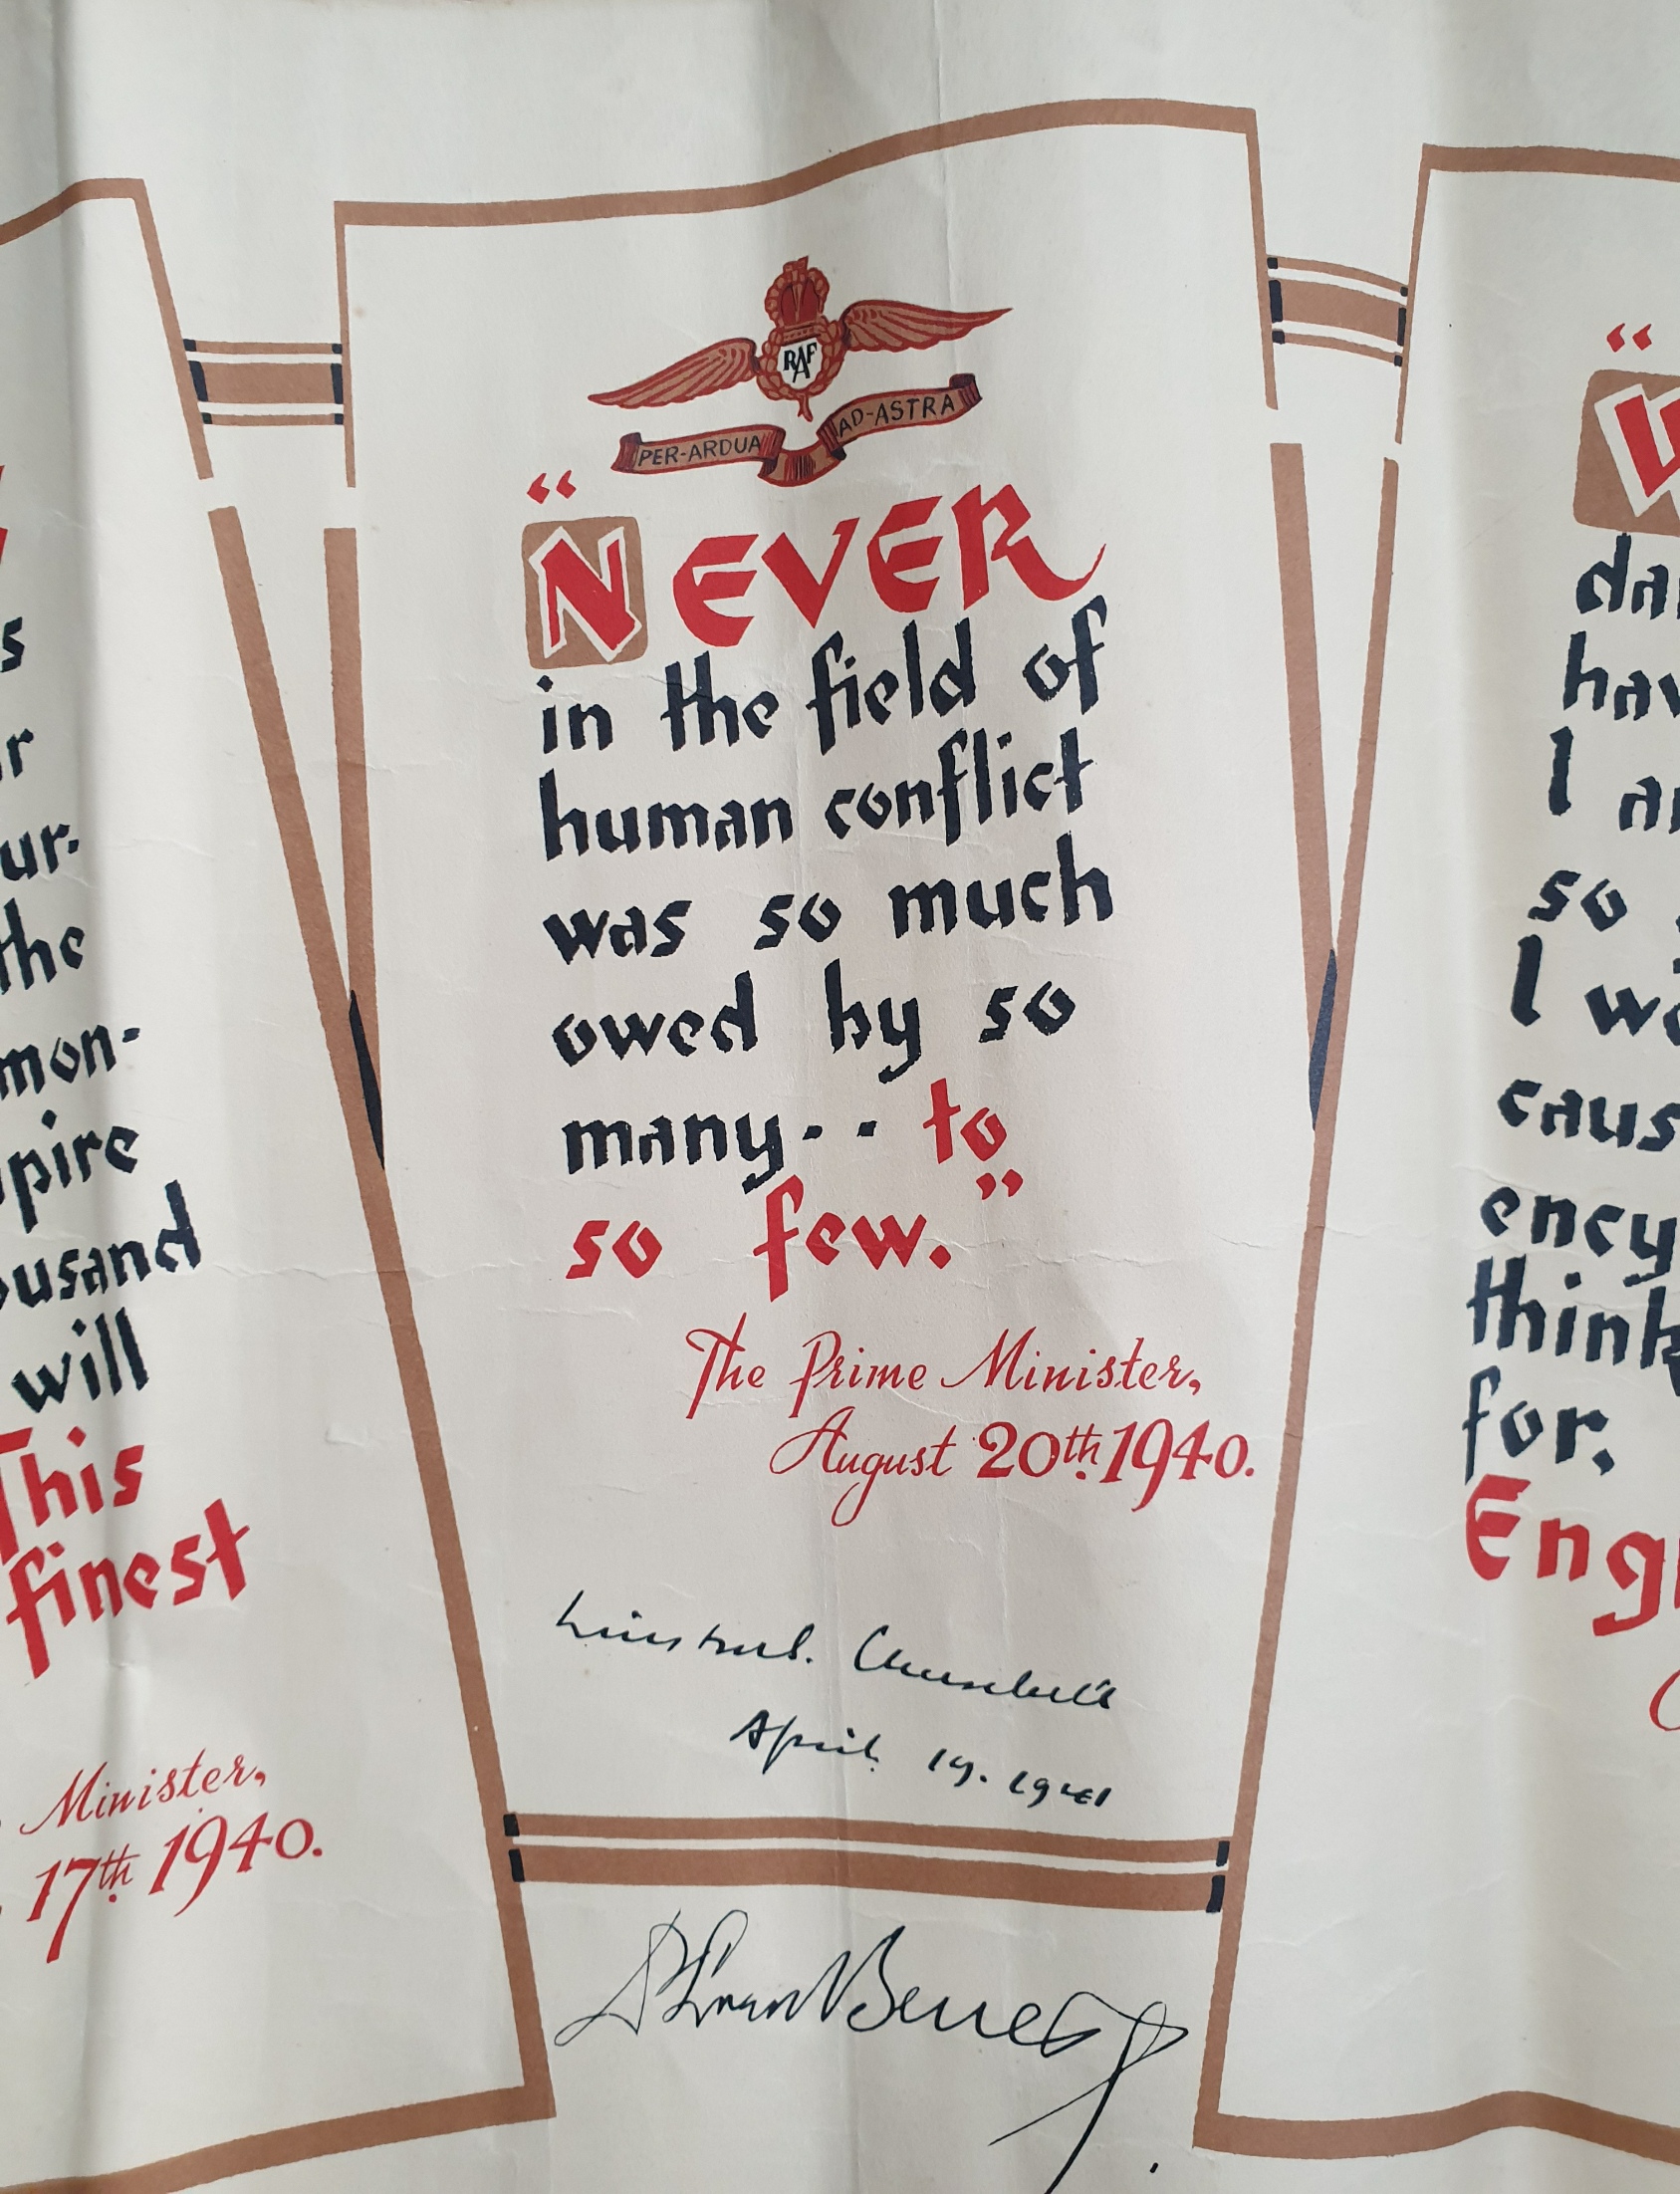 s
r
ur-
the
mon-
pire
ousand
will
This
finest
Minister,
17th 1940.
RAF
PER-ARDUA AD-ASTRA
“NEVER
in the field of
human conflict
was so much
owed by so
many-- to
so few.”
The Prime Minister,
August 20th 1940.
Winston S. Churchill
April 19. 1941
“W
da
hav
I a
so
I w
caus
ency
think
for,
Eng